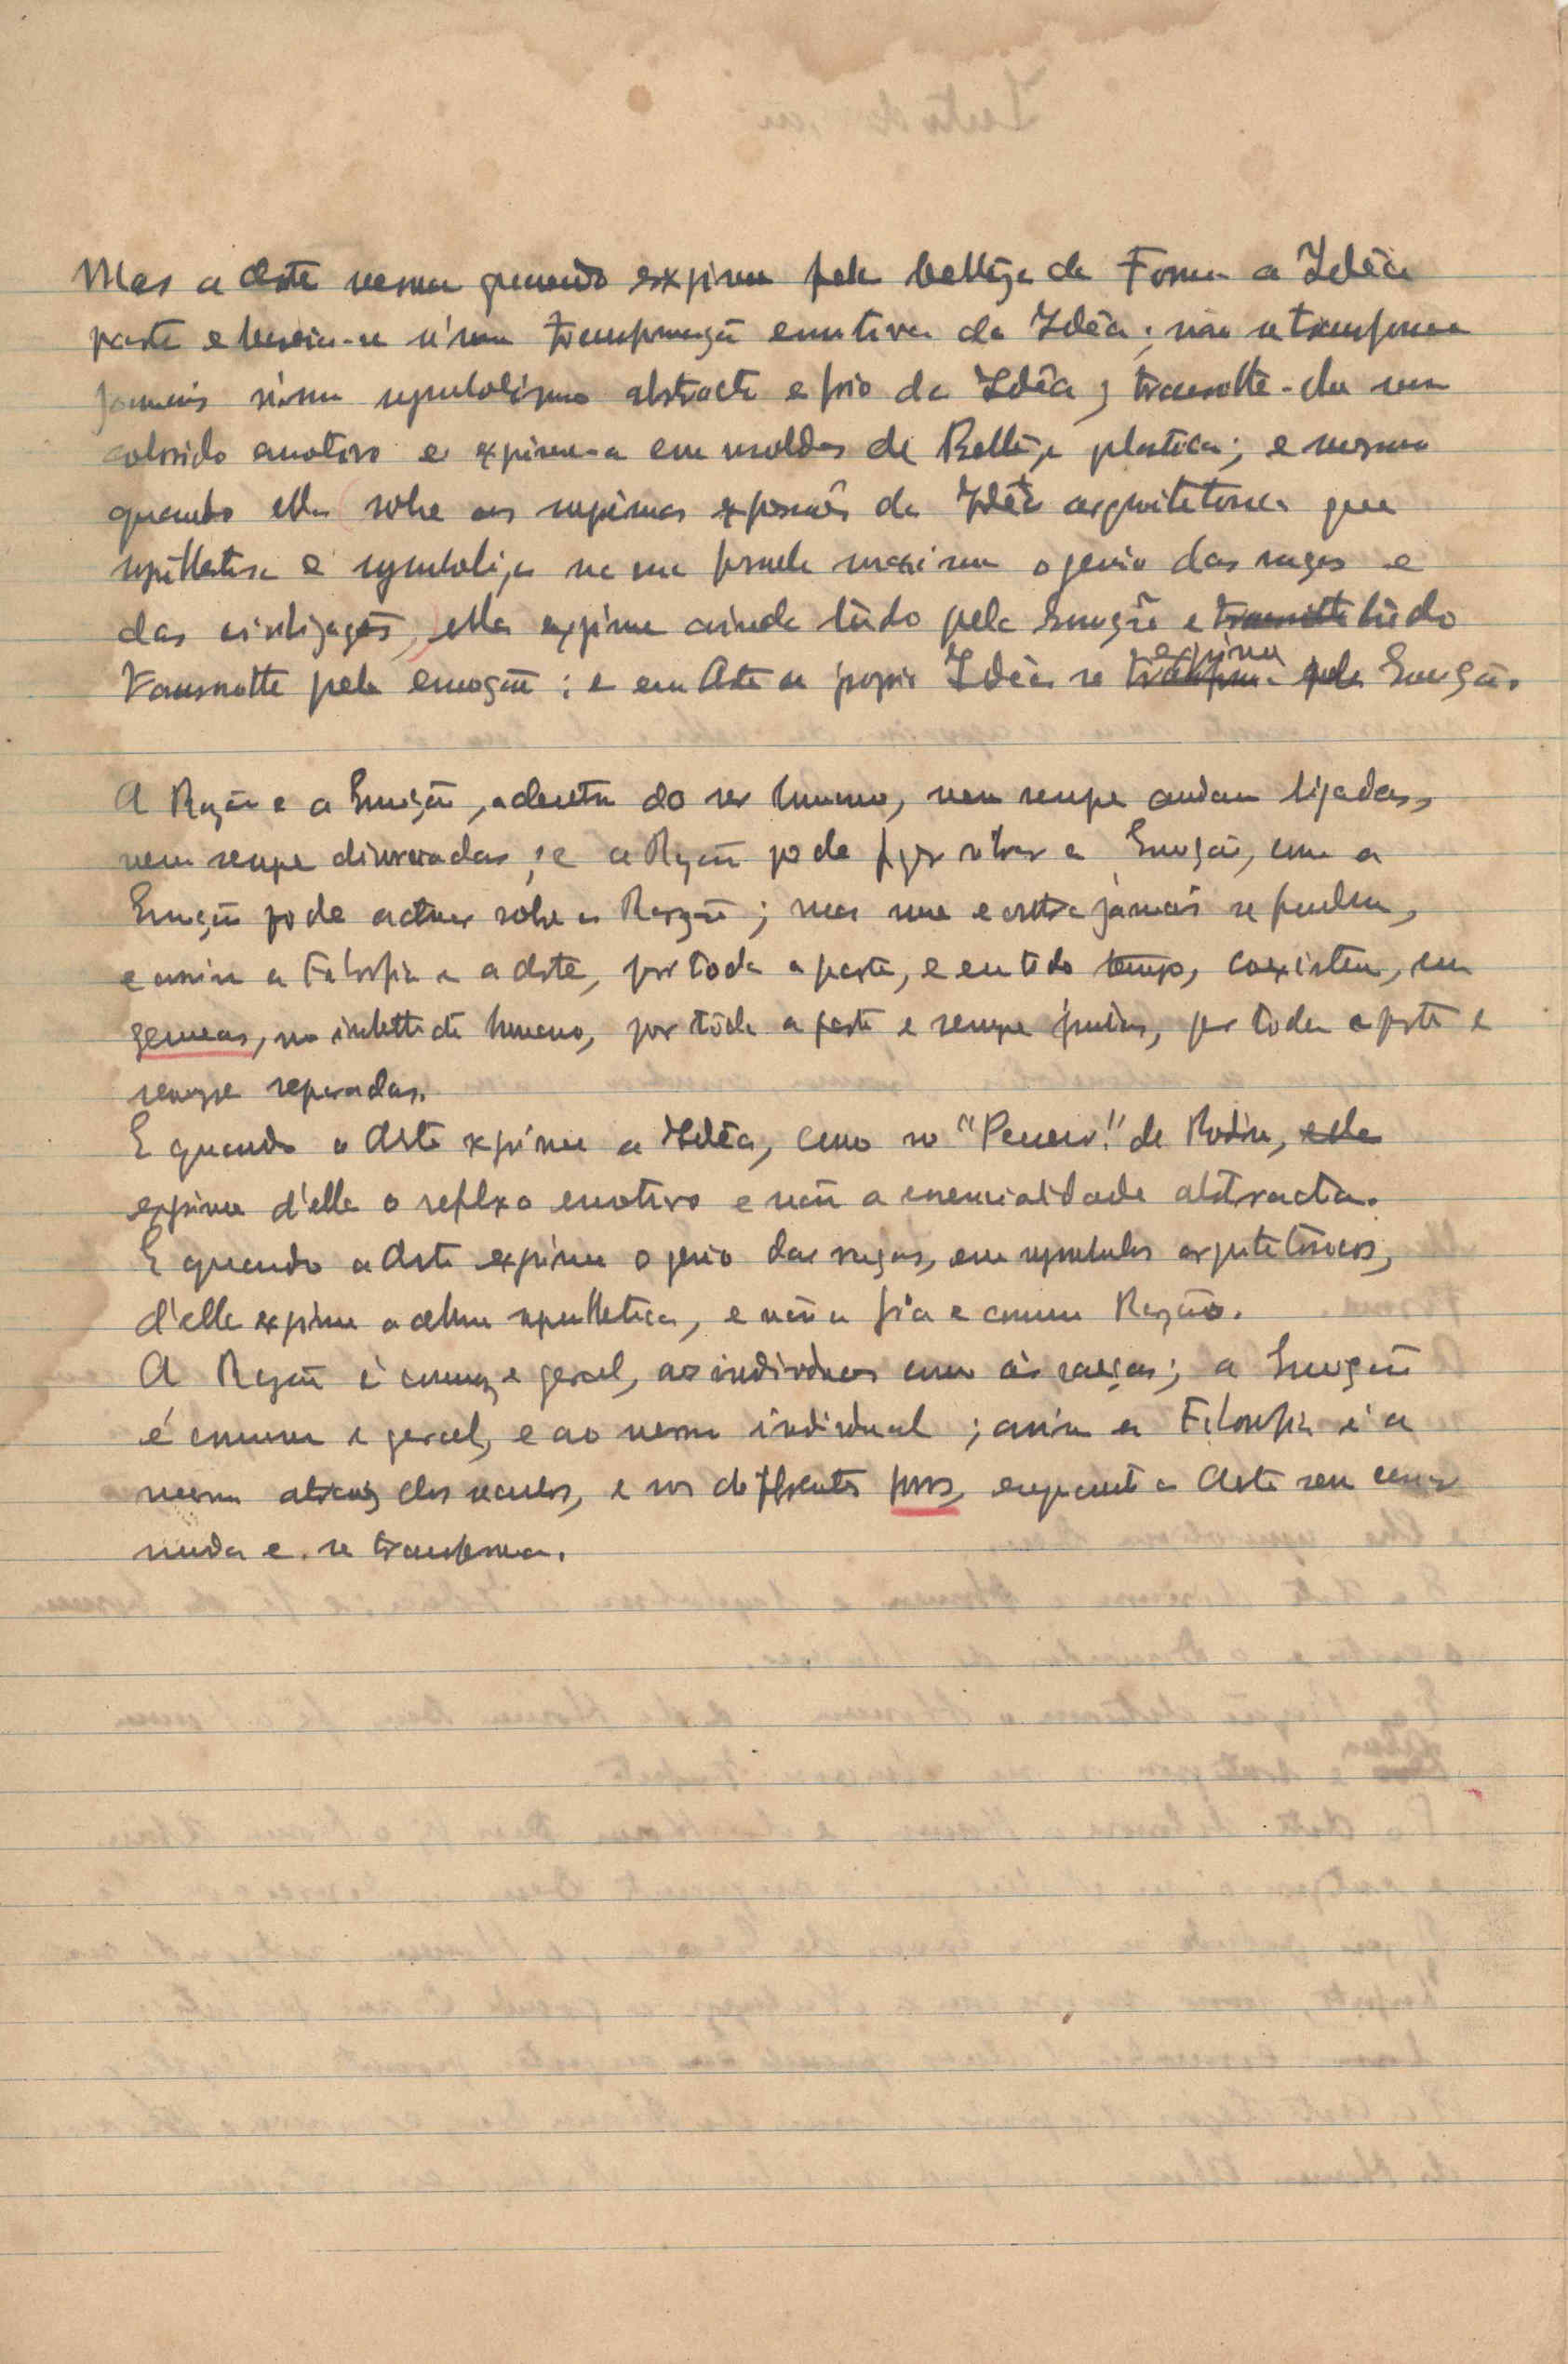 Mas a Arte mesmo quando exprime pela belleza da Forma a Idêa
parte e baseia-se n'uma transformação emotiva da Idêa; não se transforma
jamais n'um symbolismo abstracto e frio da Idêa; transmitte-lhe um
colorido emotivo e exprime-a em moldes de Belleza plastica; e mesmo
quando ella sobe ás supremas expressões da Idêa arquitetonica que
synthetisa e symbolisa na sua formula maxima o genio das raças e
das civilizações, ella exprime ainda tudo pela Emoção e transmitte tudo
Transmitte pela emoção: e em Arte a propria Idêa se exprime pela Emoção.
A Razão e a Emoção, adentro do ser humano, nem sempre andam ligadas,
nem sempre divorciadas; e a Razão pode agir sobre a Emoção, como a
Emoção pode actuar sobre a Razão; mas uma e outra jamais se fundem,
e assim a Filosofia e a Arte, por toda a parte, e em todo tempo, coexistem, como
gemeas, no intellecto humano, por toda a parte e sempre juntas, por toda a parte e
sempre separadas.
E quando a Arte exprime a Idêa, como no "Penseur!" de Rodin, ella
exprime d'ella o reflexo emotivo e não a essencialidade abstracta.
E quando a Arte exprime o genio das raças, em symbolos arquitetonicos,
d'elle exprime a alma synthetica, e não a fria e comum Razão.
A Razão é comum e geral, aos individuos como ás raças; a Emoção
é comum e geral, e ao mesmo individual; assim a Filosofia é a
mesma atravez dos seculos, e nos differentes povos, emquanto a Arte sem cessar
muda e se transforma.